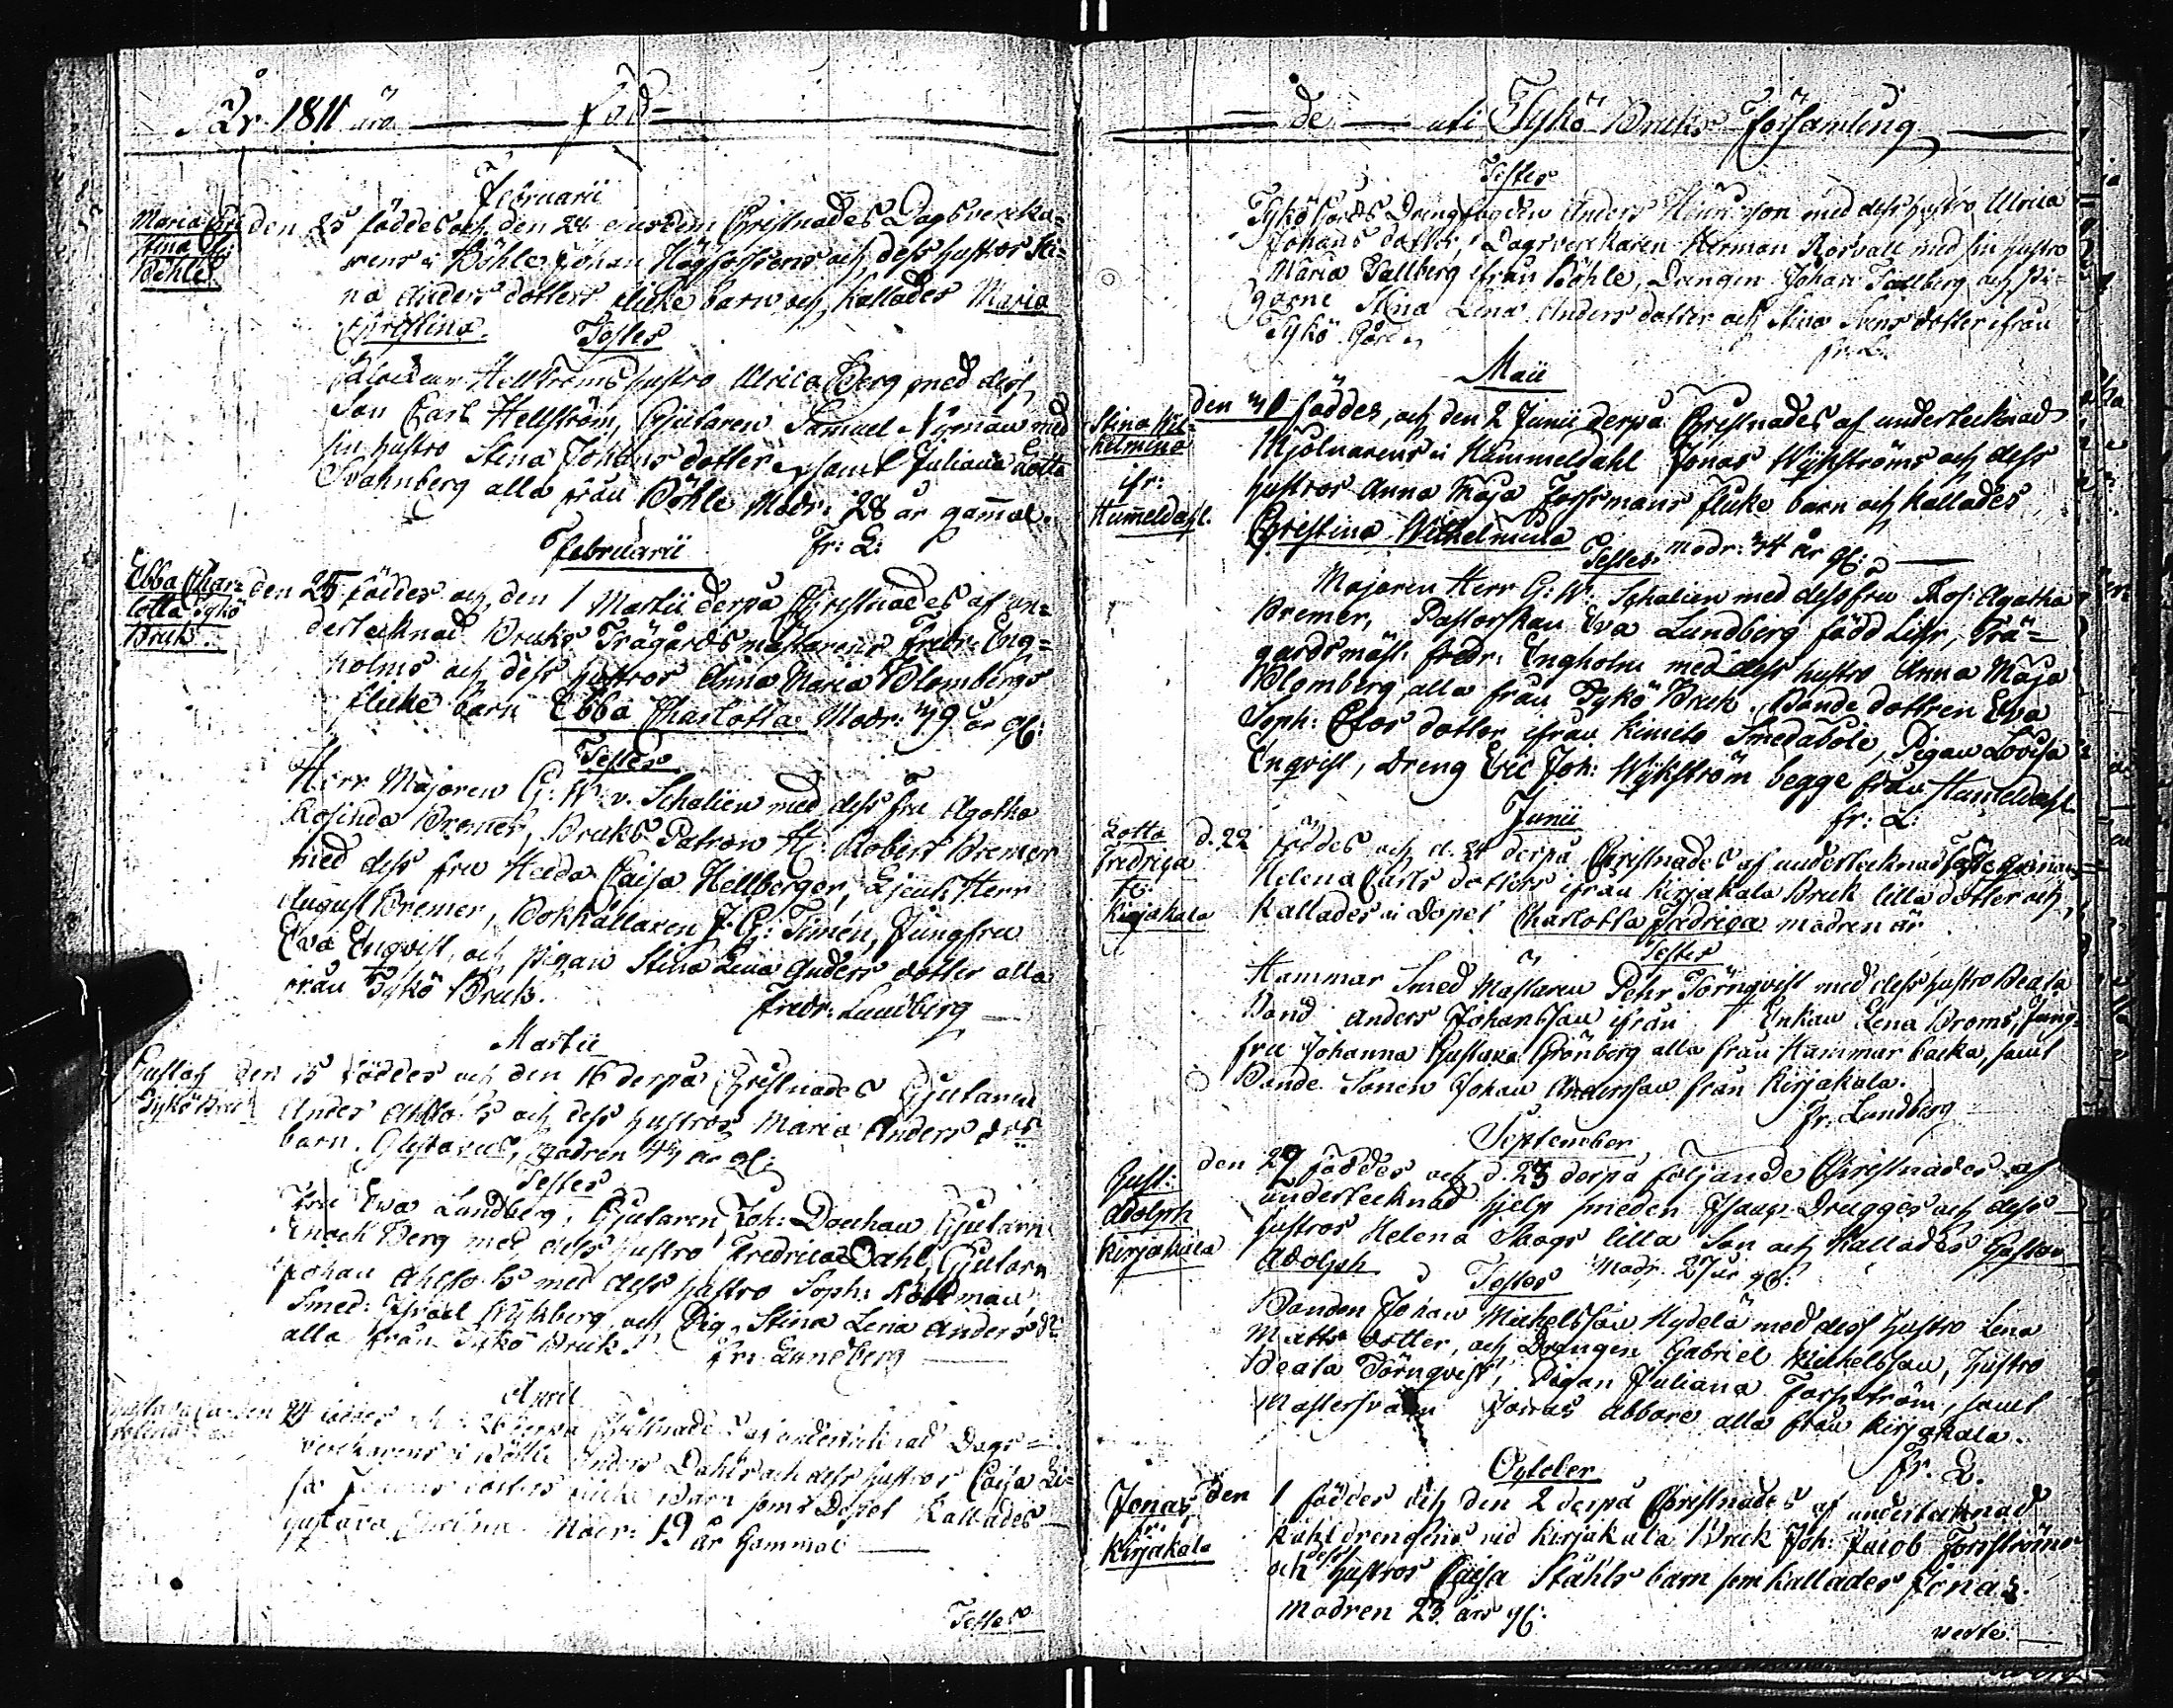 År 1811 äro föd=
Februarii
Maria Chri
stina fr:
Böhle
den 25 föddes och den 28 ejusdem Christnades Dagsverka=
rens i Böhle Johan Högforssens och dess hustros Sti=
na Anders dotters flicke barn och kallades Maria
Christina. Testes
Hellströms hustro Ulrica Berg med dess
Son Carl Hellström, Gjutaren Samuel Nyman med
sin hustro Stina Johans dotter samt Juliana Lotta
Svahnberg alla från Böhle Modr: 28 år gammal.
Fr: L:
Februarii
Ebba Char=
lotta Tykö
Bruk.
den 25 föddes och den 1 Martii derpå Christnades af un=
dertecknad Bruks Trägårdsmästarens Fredr: Eng=
holms och dess hustros Anna Maria Blombergs
flicke barn Ebba Charlotta Modr: 39 år gl:
Testes
Herr Majoren G: W: v. Schalien med dess fru Agatha
Rosinda Bremer, Bruks Patron H: Robert Bremer
med dess fru Hedda Caisa Hellberger, Herr
August Bremer, Bokhållaren J: G: Timén, Jungfru
Eva Enqvist, och Pigan Stina Lena Anders dotter alla
från Tykö Bruk.
Fredr: Lundberg
Martii
Gustaf
Tykö Bruk
den 15 föddes och den 16 derpå Christnades Gjutaren
Anders och dess hustros Maria Anders drs
barn. Gustavus, Modren 43 år gl:
Testes
Fru Eva Lundberg, Gjutaren Joh: Gjutarn
Enoch Berg med dess hustro Fredrica Dahl, Gjutarn
Johan med dess hustro Soph:
Smed: Israel Nykberg och Pig. Stina Lena Anders dr
alla från Tykö Bruk.
Fr: Lundberg
April
Gustava Ca=
rolina
den 24 föddes och d. 26 derpå Christnades af undertecknad Dags=
verkarens i Böhle Anders Dahls och dess hustros Caisa Li=
sa dotters flicke Barn som i Dopet kallades
Gustava Carolina Modr: 19 år Gammal
Testes
de uti Tykö Bruks Församling
Testes
Tykö Gårds Drengfogden Anders Hinricson med dess hustro Ulrica
Johans dotter, Dagsverkaren Herman Rosvall med sin hustro
Maria Tallberg ifrån Böhle, Drengen Johan Tallberg och Pi=
gorne Stina Lena Anders dotter och Stina Svens dotter ifrån
Tykö Gård
Fr: L.
Maii
Stina Wil=
helmina
ifr:
Hummeldahl.
den 31 föddes, och den 2 Junii derpå Christnades af undertecknad
Mjölnarens i Hummeldahl Jonas Wykströms och dess
hustros Anna Maja Forssmans flicke barn och kallades
Christina Wilhelmina Modr: 34 år gl:
Testes
Majoren Herr G: W: Schalien med dess fru Ros: Agatha
Bremer, Pastorskan Eva Lundberg född Lihr, Trä=
gårdsmäst: Fredr: Engholm med dess hustro Anna Maja
Blomberg alla från Tykö Bruk, Bonde dottren Eva
Soph: Elos dotter ifrån Kimito Smedaböle, Pigan Lovisa
Enqvist, Dreng Eric Joh: Wykström begge från Hummeldahl
Fr: L:
Junii
Lotta
Fredrica
fr:
Kirjakala
d. 22 föddes och d. 24 derpå Christnades af undertecknad
Helena Carls dotters ifrån Kirjakala Bruk lilla dotter och
kallades i Dopet Charlotta Fredrica modren är
Testes
Hammar Smed Mästaren Pehr Törnqvist med dess hustro Beata
Bond Anders Johansson ifrån Enkan Lena Broms, Jung=
fru Johanna Gustava Grönberg alla från Hammar backa, samt
Bonde Sonen Johan Andersson från Kirjakala.
Fr: Lundberg
September
Gust:
Adolph
Kirjakala
den 27 föddes och d. 28 derpå följande Christnades af
undertecknad hjelp smeden Isaac Dragges och dess
hustros Helena Skogs lilla Son och kallades Gustav
Adolph Modr. 27 år gl:
Testes
Bonden Johan Michelsson Hydelä med dess hustro Lena
Matts dotter, och Drengen Gabriel Michelsson, Hustro
Beata Törnqvist, Pigan Juliana Forsström, samt
Mästersven Jonas Abbore alla från Kirjakala.
Fr. L.
October
Jonas
fr:
Kirjakala
den 1 föddes och den 2 derpå Christnades af undertecknad
Kohldrengens vid Kirjakala Bruk Joh: Jacob Forsströms
och dess hustros Cajsa Ståhls barn som kallades Jonas.
Modren 23 års gl:
verte.